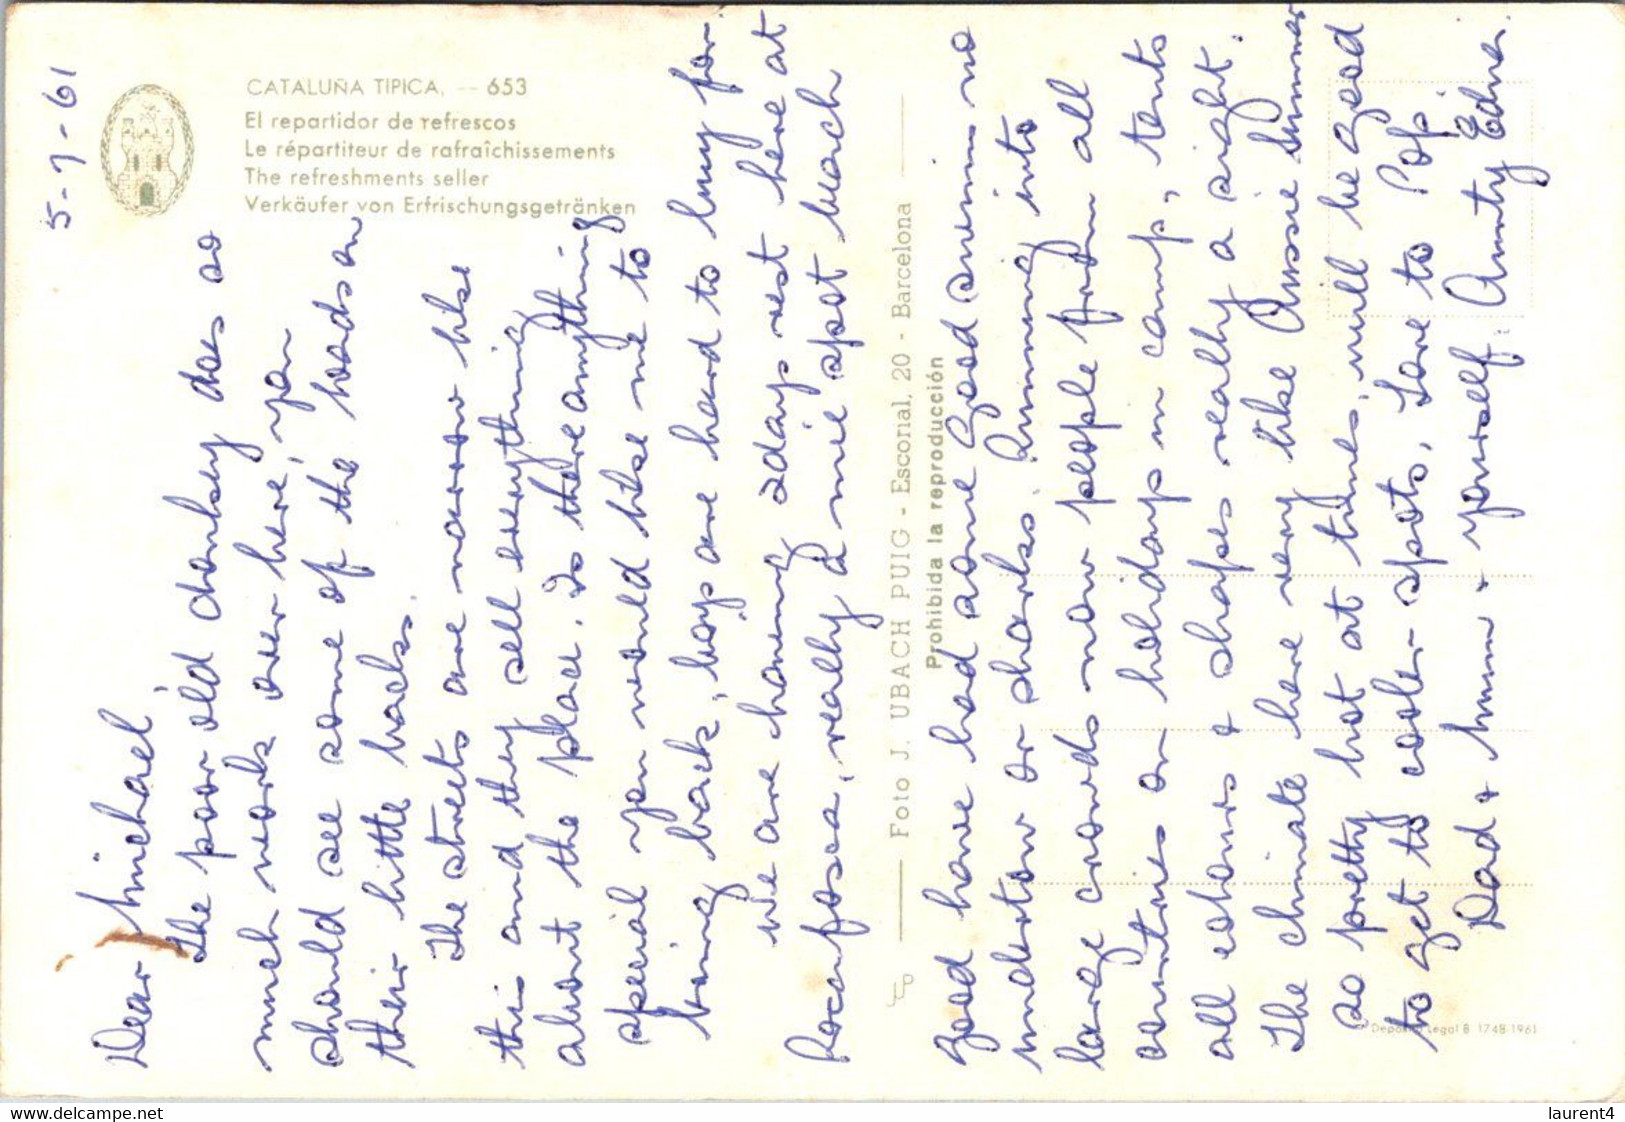 5-7-61
CATALUÑA TIPICA, -- 653
El repartidor de refrescos
Le répartiteur de rafraîchissements
The refreshments seller
Verkäufer von Erfrischungsgetränken
Dear Michael
The poor old donkey does so
much work over here, you
should see some of the loads on
their little backs.
The streets are narrow like
this and they sell everything
about the place. Is there anything
special you would like me to
bring back, boys are hard to buy for.
We are having 2 days rest here at
Rocanfosca, really a nice spot. beach
Foto J. UBACH PUIG - Escorial, 20 - Barcelona
Prohibida la reproducción
good have had some good swims no
undertow or sharks. Running into
large crowds now people from all
countries on holidays in camp, tents
all colours & shapes really a sight.
The climate here very like Aussie summer
so pretty hot at times, will be good
to get to cooler spots, Love to Pop,
Dad & Mum & yourself. Aunty Edna.
Deposito Legal B 1748-1961
www.delcampe.net
laurent4